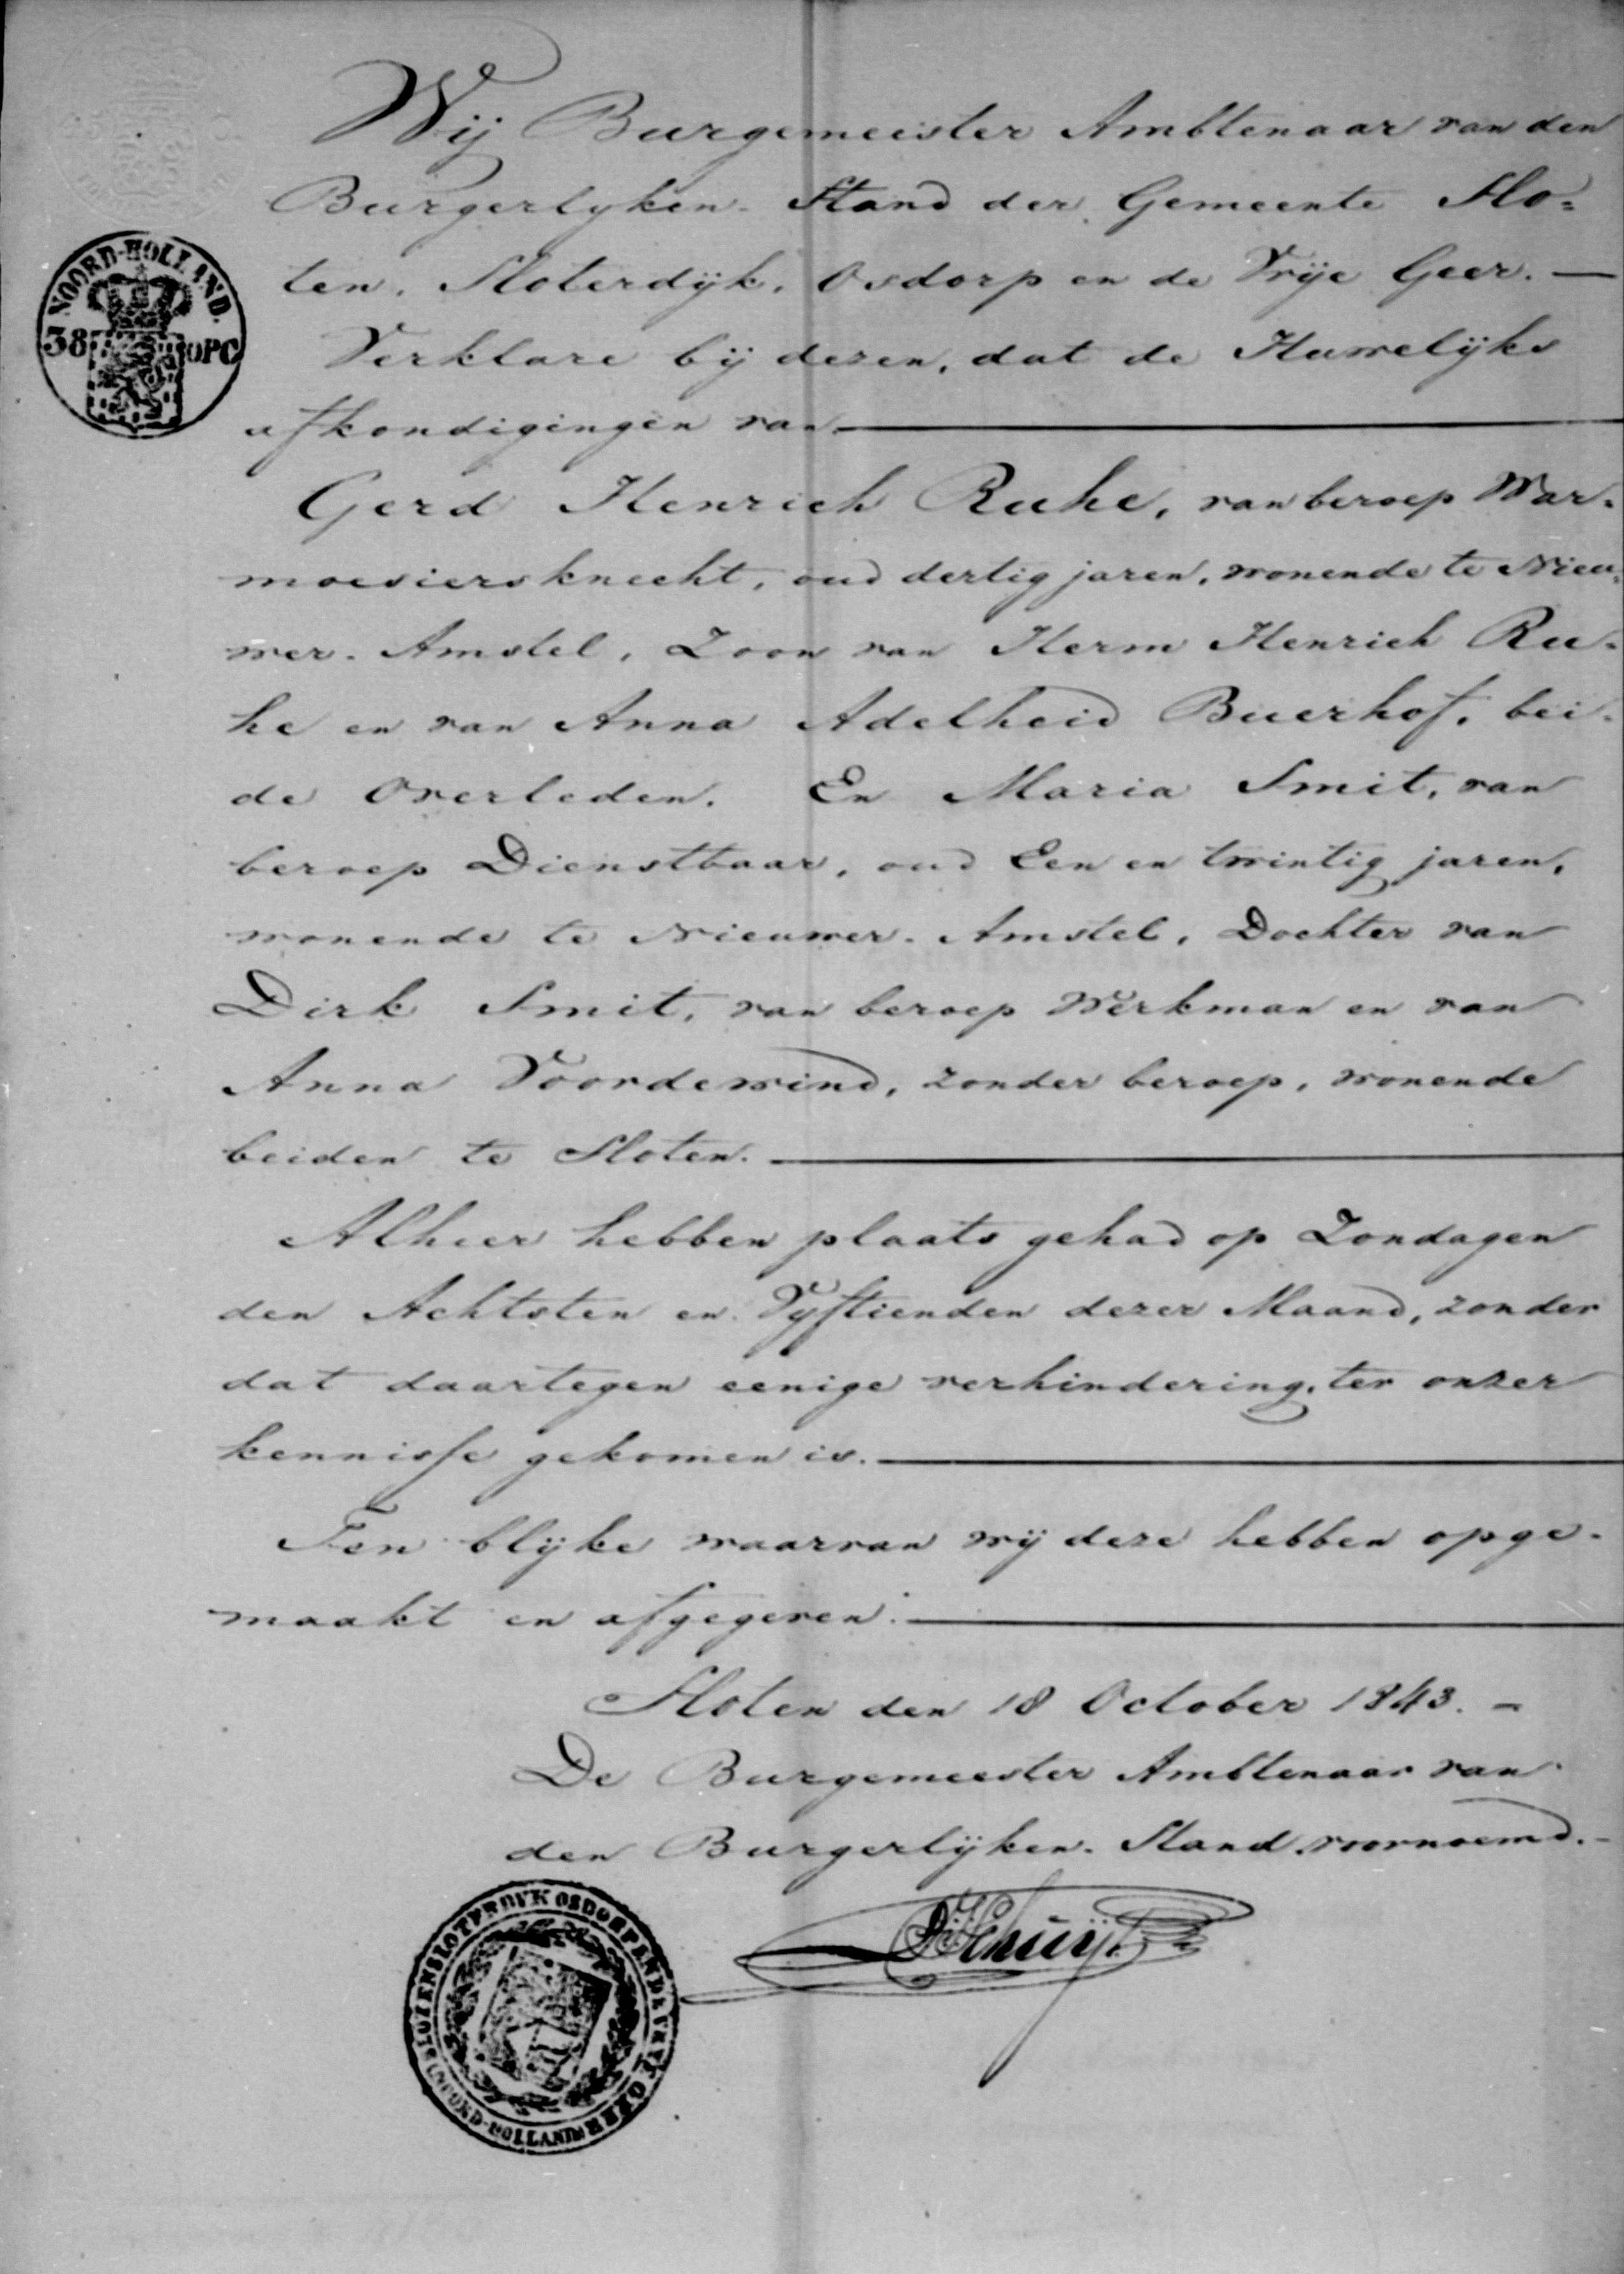 Wij Burgemeester Ambtenaar van den
Burgerlyken Stand der Gemeente Slo=
ten, Sloterdijk, Osdorp en de Vrije Geer. —
NOORD-HOLLAND.
38 OPC
Verklare bij dezen, dat de Huwelijks
afkondigingen van
Gerd Henrich Ruhe, van beroep War=
moesiersknecht, oud dertig jaren, wonende te Nieu=
wer-Amstel, Zoon van Herm Henrich Ru=
he en van Anna Adelheid Buerhof, bei=
de Overleden. En Maria Smit, van
beroep Dienstbaar, oud Een en twintig jaren,
wonende te Nieuwer-Amstel, Dochter van
Dirk Smit, van beroep Werkman en van
Anna Voordewind, zonder beroep, wonende
beiden te Sloten.
Alhier hebben plaats gehad op Zondagen
den Achtsten en Vyftienden dezer Maand, zonder
dat daartegen eenige verhindering, ter onzer
kennisse gekomen is.
Ten blijke waarvan wij deze hebben opge=
maakt en afgegeven.
Sloten den 18 October 1843. -
De Burgemeester Ambtenaar van
den Burgerlijken Stand voornoemd. -
SLOTEN SLOTERDYK OSDORP EN DE VRYE GEER
(NOORD-HOLLAND)